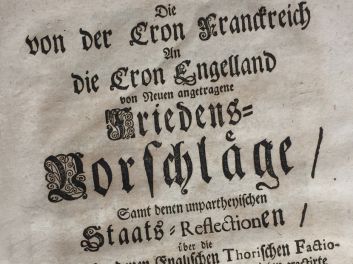 Die
von der Cron Franckreich
An
die Cron Engelland
von Neuen angetragene
Friedens=
Vorschläge /
Samt denen unpartheyischen
Staats=Reflectionen /
über die
Englischen Thorischen Factio-